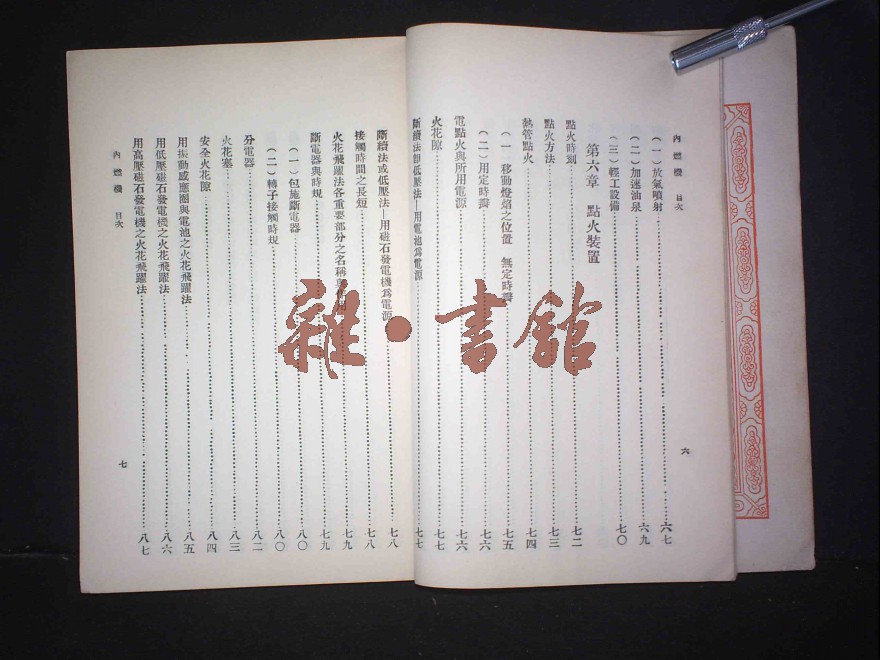 內燃機 目次
(一)放氣噴射……六七
(二)加速油泉……六九
(三)輕工設備……七〇
第六章 點火裝置
點火時刻……七二
點火方法……七三
熱管點火……七四
(一)移動燈焰之位置 無定時瓣……七五
(二)用定時瓣……七六
電點火與所用電源……七六
火花隙……七七
斷續法卽低壓法—用電池爲電源……七七
六
斷續法或低壓法—用磁石發電機爲電源……七八
接觸時間之長短……七八
火花飛躍法各重要部分之名稱與作用……七九
斷電器與時規……七九
(一)包施斷電器……八〇
(二)轉子接觸時規……八〇
分電器……八二
火花塞……八三
安全火花隙……八四
用振動感應圈與電池之火花飛躍法……八五
用低壓磁石發電機之火花飛躍法……八六
用高壓磁石發電機之火花飛躍法……八七
內燃機 目次
七
雜·書館